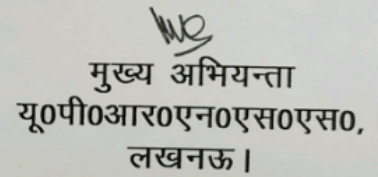 मुख्य अभियन्ता
यू0पी0आर0एन0एस0एस0,
लखनऊ।